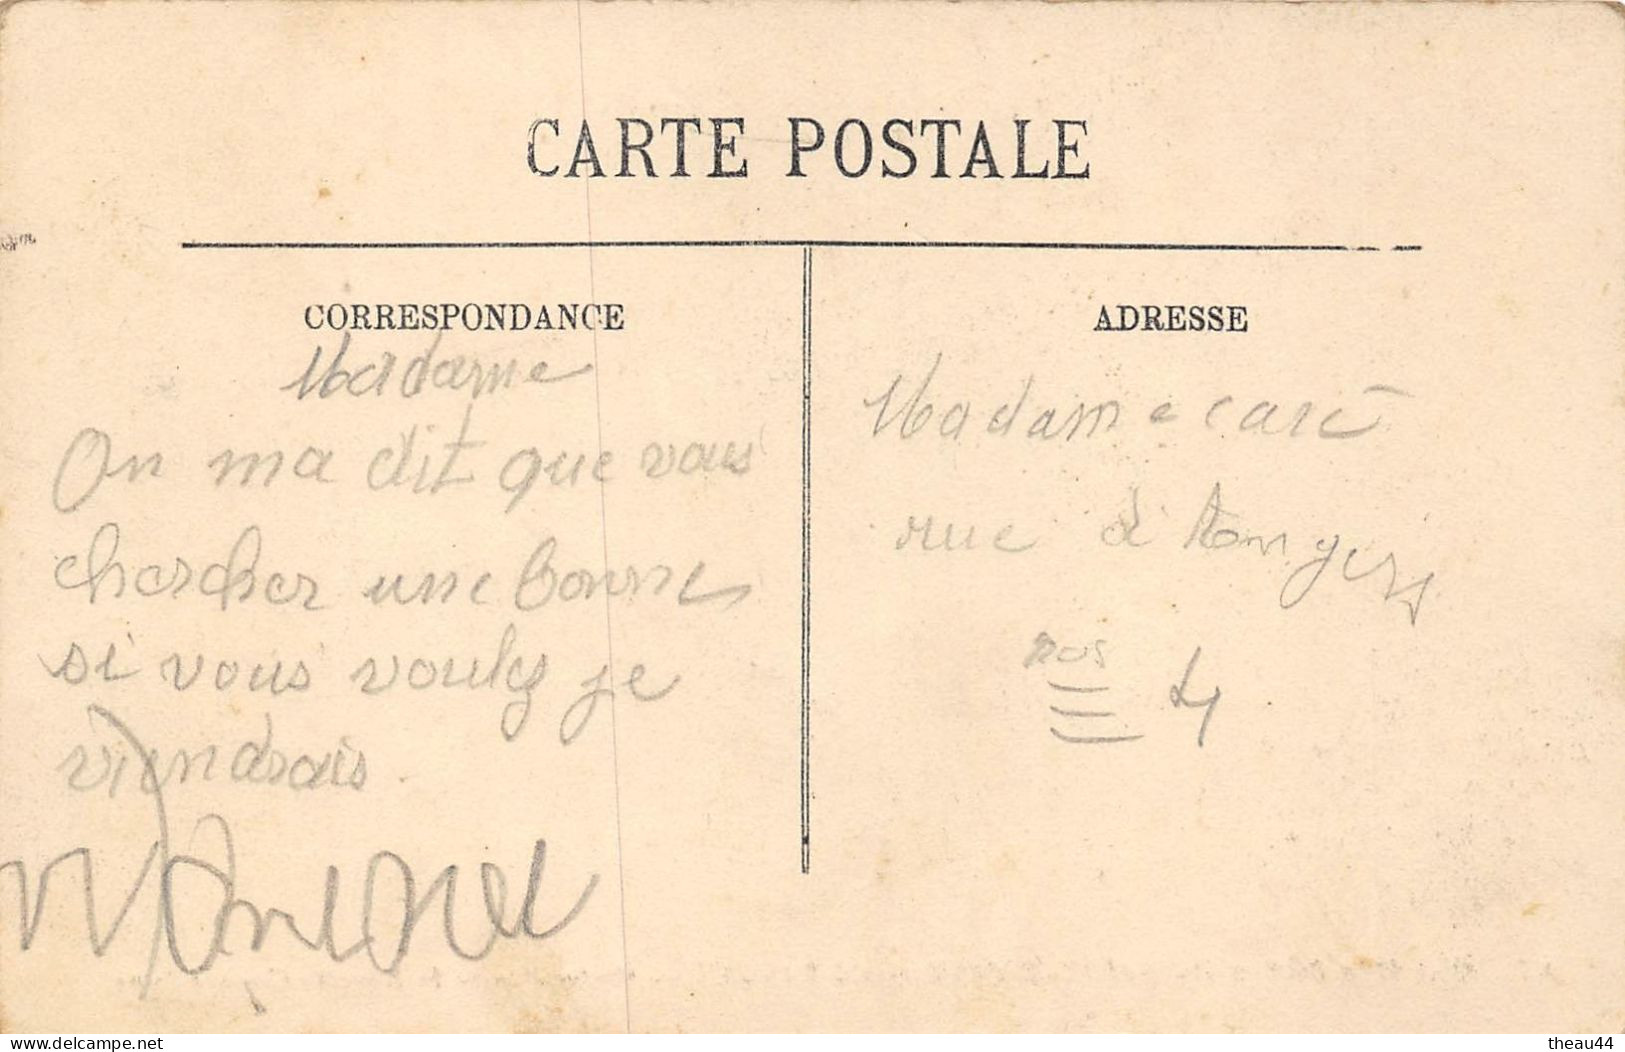 CARTE POSTALE
CORRESPONDANCE
Madame
On ma dit que vous
chercher une bonne
si vous voulez je
viendrais
ADRESSE
Madame caré
rue d'Angers
nos 4
www.delcampe.net
theau44